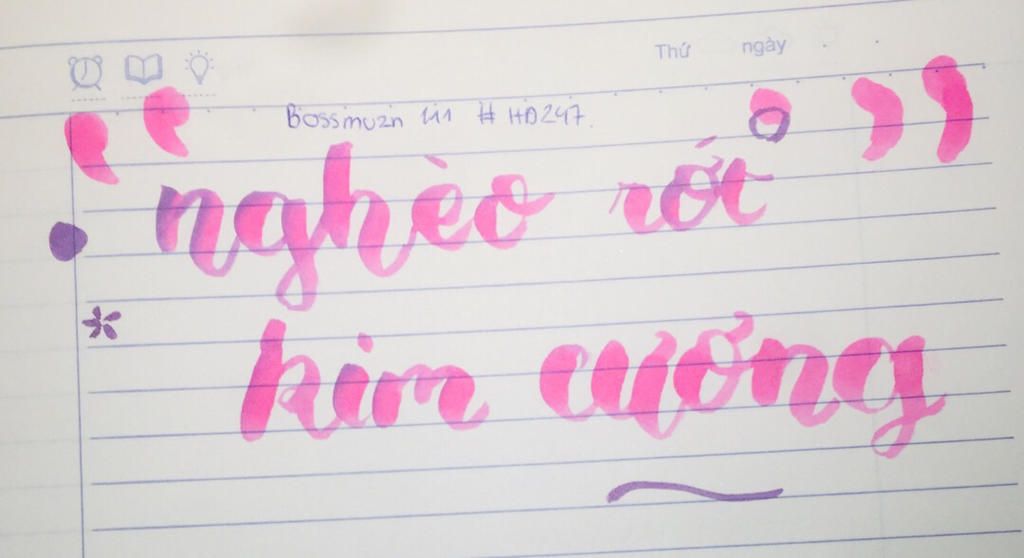 Thứ ngày . .
Bossmuzn 111 # HD247.
“nghèo rớt”
* kim cương